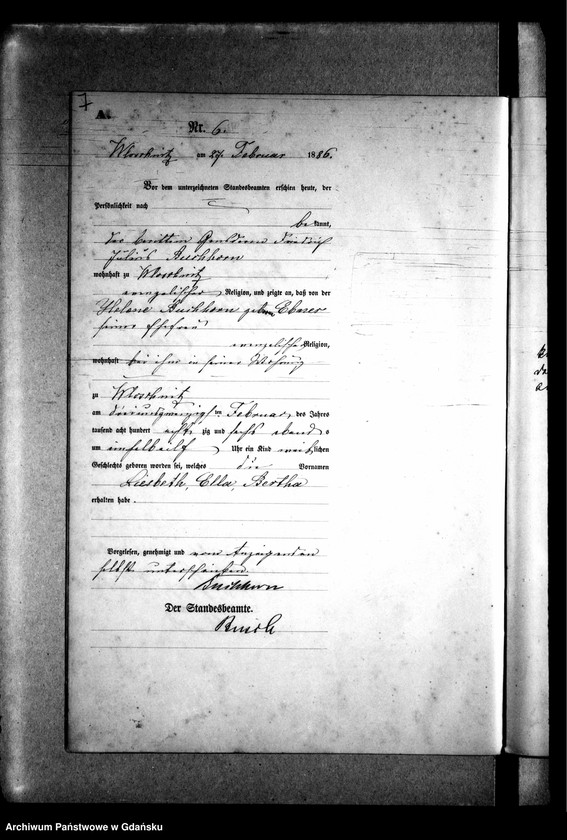 7
A.
Nr. 6.
Wloschnitz am 27. Februar 1886.
Vor dem unterzeichneten Standesbeamten erschien heute, der
Persönlichkeit nach
bekannt,
der Friedrich
Julius Buchhorn
wohnhaft zu Wloschnitz
evangelischer Religion, und zeigte an, daß von der
Helene Buchhorn geborenen Ebner
seiner Ehefrau
evangelischer Religion,
wohnhaft bei ihm in seiner Wohnung
zu Wloschnitz
am dreiundzwanzigsten Februar des Jahres
tausend acht hundert achtzig und sechs abends
um einhalbelf Uhr ein Kind weiblichen
Geschlechts geboren worden sei, welches die Vornamen
Liesbeth, Ella, Bertha
erhalten habe.
Vorgelesen, genehmigt und vom Anzeigenden
selbst unterschrieben.
Buchhorn
Der Standesbeamte.
Busch
Archiwum Państwowe w Gdańsku